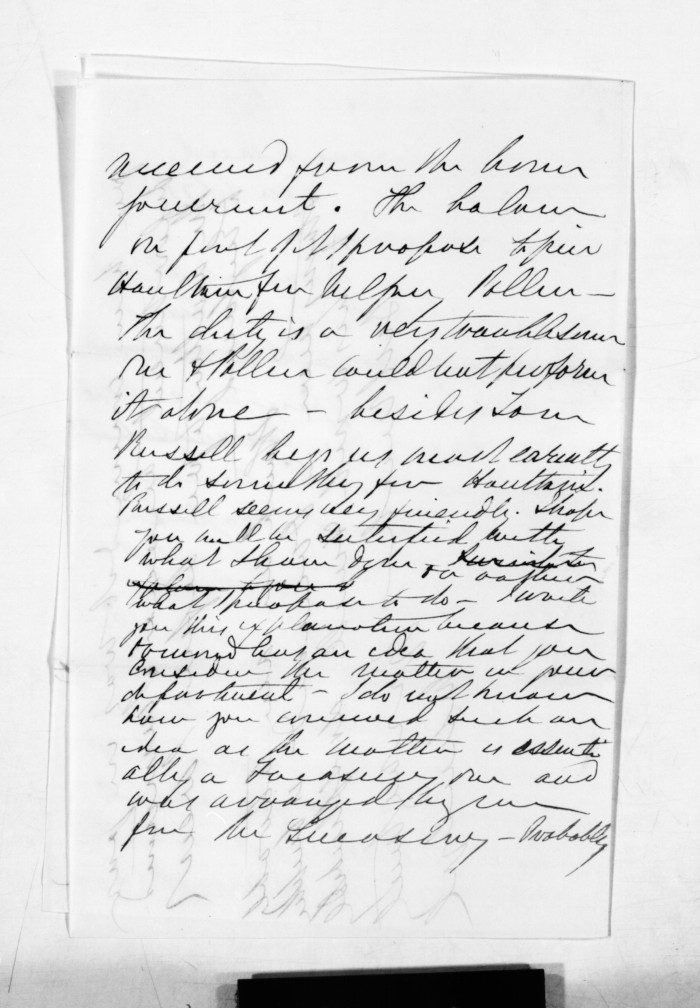 received from the home
Government. The balance
or part of it I propose to give
Haultain for helping Pollen —
The duty is a very troublesome
one & Pollen could not perform
it alone — besides Tom
Russell begs us most earnestly
to do something for Haultain.
Russell seems very friendly. I hope
you will be satisfied with
what I have done or rather
what I propose to do — I write
you this explanation because
Ormond has an idea that you
consider the matter in your
department — I do not know
how you conceived such an
idea as the matter is essenti
ally a Treasury one and
was arranged by me
for the Treasury — Probably